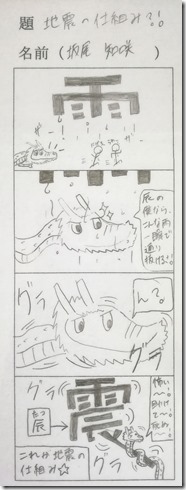 題 地震の仕組み?!
名前(坂尾 知咲)
雨
ザー!
ザー!
辰の
僕なら、
こんな雨
一瞬で
通り
抜ける!!
グラ
ん?
グラ
グラ
震
辰
たつ
怖い
〜。
助け
て〜。
グラ
これが地震の
仕組み☆